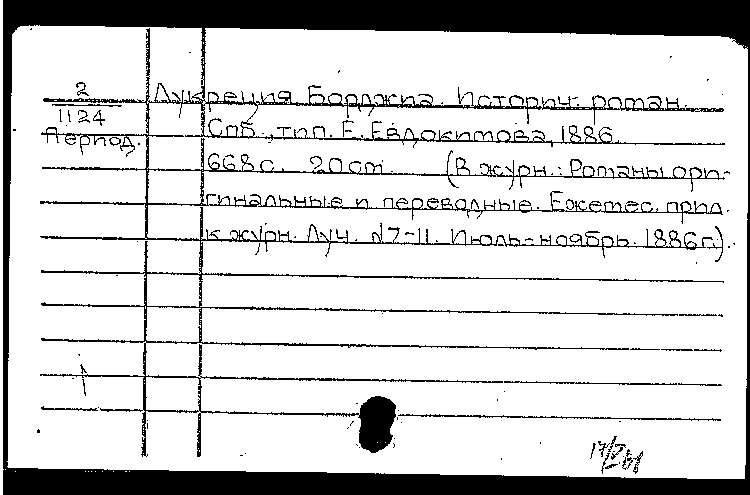 2
1124
Период.
Лукреция Борджиа. Историч. роман.
Спб., тип. Е. Евдокимова, 1886.
668 с. 20 см. (В журн.: Романы ори-
гинальные и переводные. Ежемес. прил.
к журн. Луч. №7-11. Июль-ноябрь. 1886 г.).